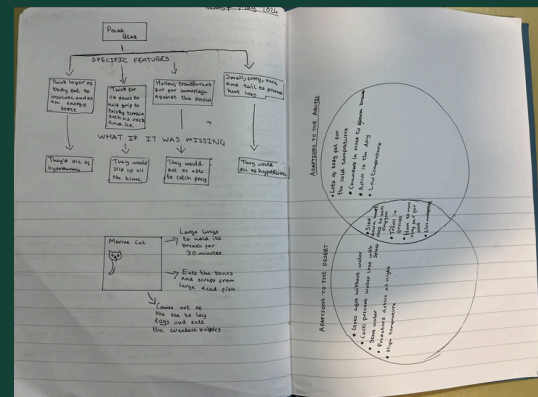 POLAR
BEAR
SPECIFIC FEATURES
Thick layer of
body fat to
insulate and as
an energy
source
Thick fur
on paws to
help grip to
tricky terrain
such as rock
and ice
Hollow, transparent
fur for camouflage
against the snow
Small, ears,
and tail to prevent
heat loss
WHAT IF IT WAS MISSING
They'd die of
hypothermia
They would
slip up all
the time
They would
not be able
to catch prey
They would
die of hypothermia
Marine Cat
Large lungs
to hold its
breath for
30 minutes
Eats the bones
and scraps from
large dead fish
Comes out of
the sea to lay
eggs and eats
the weakest babies
ADAPTIONS TO THE ARCTIC
• Lots of body fat for
the cold temperatures
• Chambers in nose to warm
• Active in the day
• Low temperature
groups
ADAPTIONS TO THE DESERT
• Copes ages without water
• Can prevent water loss with
• Store water
• Predators active at night
• High temperature